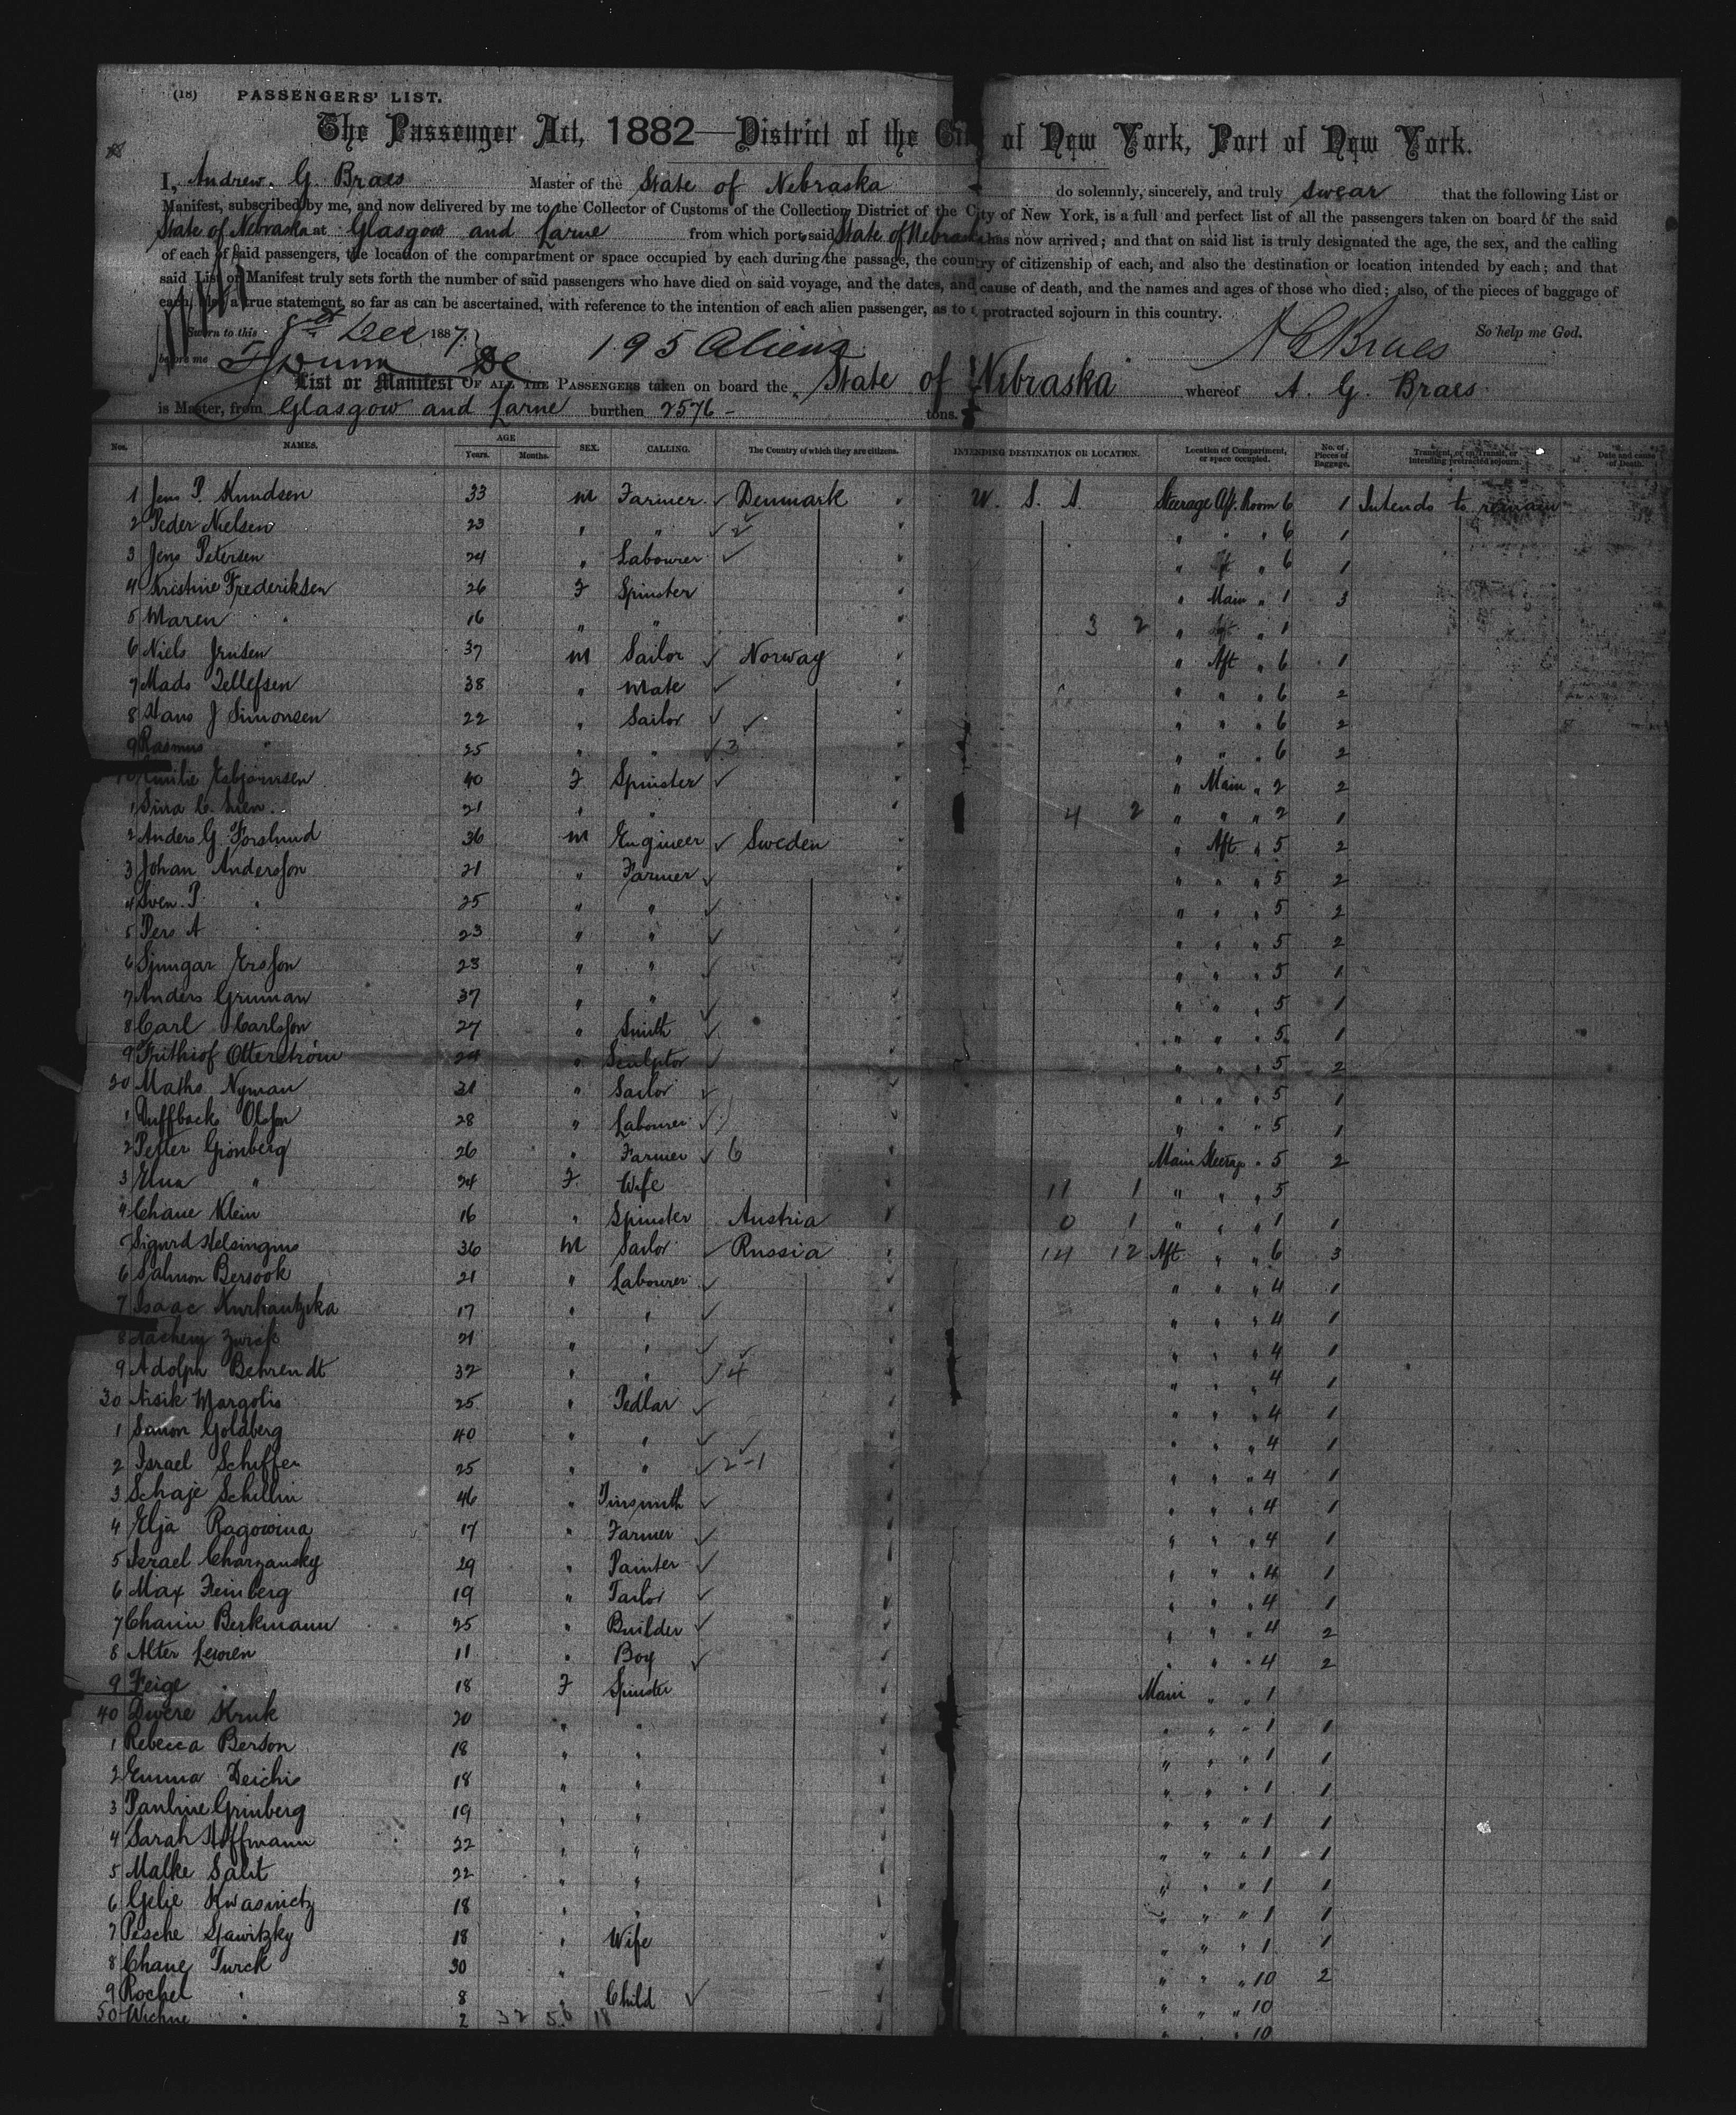 (18) PASSENGERS' LIST.
The Passenger Act, 1882—District of the City of New York, Port of New York.
I, Andrew. G. Braes Master of the State of Nebraska do solemnly, sincerely, and truly swear that the following List or
Manifest, subscribed by me, and now delivered by me to the Collector of Customs of the Collection District of the City of New York, is a full and perfect list of all the passengers taken on board of the said
State of Nebraska at Glasgow and Larne from which port said State of Nebraska has now arrived; and that on said list is truly designated the age, the sex, and the calling
of each of said passengers, the location of the compartment or space occupied by each during the passage, the country of citizenship of each, and also the destination or location intended by each; and that
said List or Manifest truly sets forth the number of said passengers who have died on said voyage, and the dates, and cause of death, and the names and ages of those who died; also, of the pieces of baggage of
each; also a true statement, so far as can be ascertained, with reference to the intention of each alien passenger, as to protracted sojourn in this country.
Sworn to this 8th Dec 1887. 195 Aliens A G Braes So help me God.
before me
List or Manifest OF ALL THE PASSENGERS taken on board the State of Nebraska whereof A. G. Braes
is Master, from Glasgow and Larne burthen 2576 - tons.
Nos. NAMES. AGE Years. Months. SEX. CALLING. The Country of which they are citizens. INTENDING DESTINATION OR LOCATION. Location of Compartment, or space occupied. No. of Pieces of Baggage. Transient, or in Transit, or intending protracted sojourn. Date and cause of Death.
1 Jens P. Knudsen 33 M Farmer Denmark U. S. A. Steerage Aft. Room 6 1 Intends to remain
2 Peder Nielsen 23 " " 2 " " " 6 1
3 Jens Petersen 24 " Labourer " " 6 1
4 Kristine Frederiksen 26 F Spinster " Main " 1 3
5 Maren " 16 " " 3 2 " " 1
6 Niels Jensen 37 M Sailor Norway " Aft " 6 1
7 Mads Tellefsen 38 " Mate " " " 6 2
8 Hans J Simonsen 22 " Sailor " " " 6 2
9 Rasmus " 25 " " 3 " " " 6 2
10 Emilie Esbjornsen 40 F Spinster " Main " 2 2
1 21 " " 4 2 " " " 2 1
2 Anders G. Forslund 36 M Engineer Sweden " Aft " 5 2
3 Johan Andersson 21 " Farmer " " " 5 2
4 Sven. P. " 25 " " " " " 5 2
5 Pers A " 23 " " " " " 5 2
6 Ersson 23 " " " " " 5 1
7 Anders Gruman 37 " " " " " 5 1
8 Carl Carlsson 27 " Smith " " " 5 1
9 Frithiof Otterström 24 " Sculptor " " " 5 2
20 Maths Nyman 21 " Sailor " " " 5 1
1 Olsson 28 " Labourer " " " 5 1
2 Petter Gronberg 26 " Farmer 6 Main Steerage " 5 2
3 Elna " 24 F. Wife 11 1 " " " 5
4 Chane Klein 16 " Spinster Austria 0 1 " " " 1 1
5 Sigurd Helsingius 36 M Sailor Russia 14 12 Aft " " 6 3
6 Salmon Bersook 21 " Labourer " " " 4 1
7 Isaac 17 " " " " " 4 1
8 Nachem Zwick 21 " " " " " 4 1
9 Adolph Behrendt 32 " " 4 " " " 4 1
30 Aisik Margolis 25 " Pedlar " " " 4 1
1 Simon Goldberg 40 " " " " " 4 1
2 Israel Schiffer 25 " " 2-1 " " " 4 1
3 Schaje Schillin 46 " Tinsmith " " " 4 1
4 Elja Ragowina 17 " Farmer " " " 4 1
5 Israel Charzansky 29 " Painter " " " 4 1
6 Max Feinberg 19 " Tailor " " " 4 1
7 Chaim Berkmann 25 " Builder " " " 4 2
8 Alter Lewien 11 " Boy " " " 4 2
9 Feige " 18 F Spinster Main " " 1
40 Dwere Kruk 20 " " " " " 1 1
1 Rebecca Berson 18 " " " " " 1 1
2 Emma Deichs 18 " " " " " 1 1
3 Pauline Grinberg 19 " " " " " 1 1
4 Sarah Hoffmann 22 " " " " " 1 1
5 Malke Salit 22 " " " " " 1 1
6 Gelie Kwasnietz 18 " " " " " 1 1
7 Pesche Stawitzky 18 " Wife " " " 1 1
8 Chane Turck 30 " " " " 10 2
9 Rochel " 8 " Child " " " 10
50 Wichne " 2 32 56 18 " " " 10